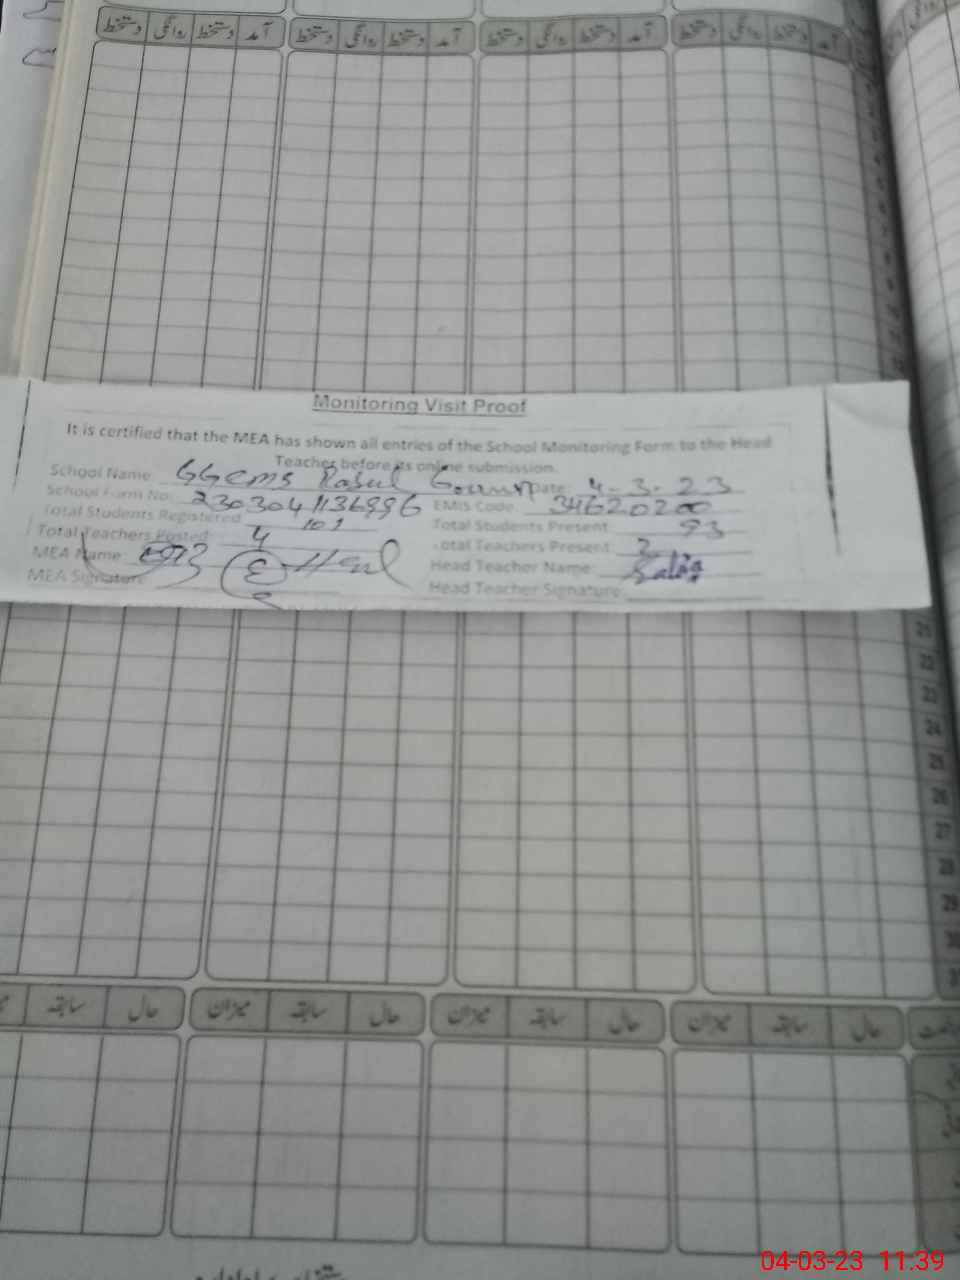 آمد دستخط روانگی دستخط آمد دستخط روانگی دستخط آمد دستخط روانگی دستخط آمد دستخط روانگی دستخط
Monitoring Visit Proof
It is certified that the MEA has shown all entries of the School Monitoring Form to the Head
Teacher before its online submission.
School Name: GGCMS Rasul Date: 4-3-23
School Form No: EMIS Code: 34620200
Total Students Registered 101 Total Students Present: 93
Total Teachers Posted: 4 Total Teachers Present: 2
MEA Name: Head Teacher Name:
MEA Signature Head Teacher Signature:
21
22
23
24
25
26
27
28
29
30
حال سابقہ میزان حال سابقہ میزان حال سابقہ میزان حال سابقہ
04-03-23 11:39